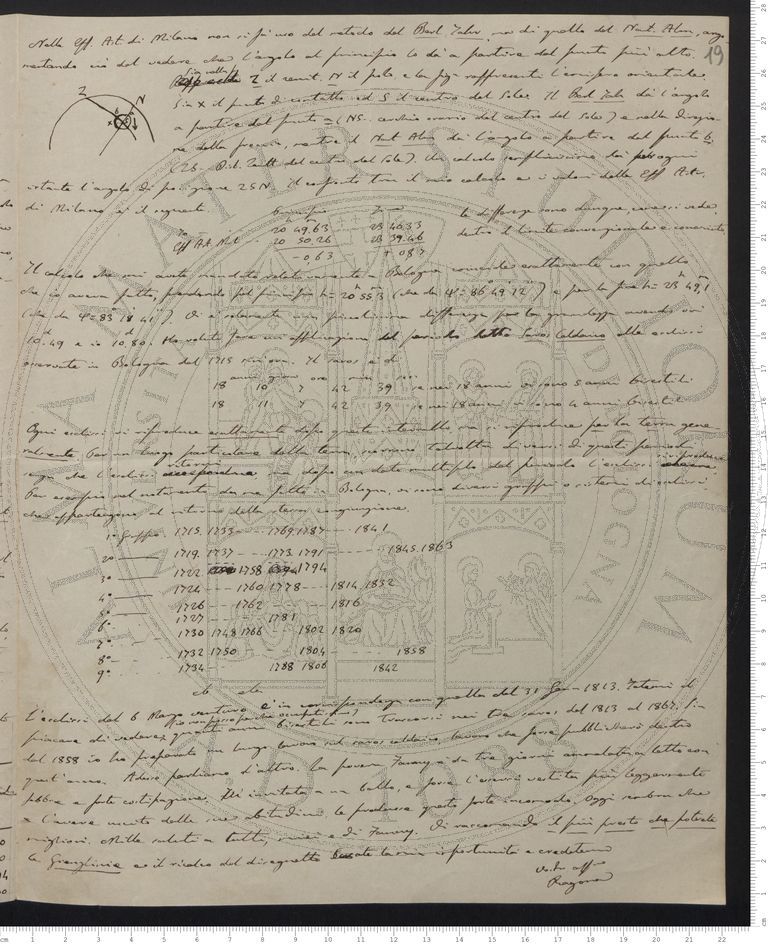 19
Nelle Eff. Ast. di Milano non si fa uso del metodo del Berl. Jahr., ma di quello del Naut. Alm., argo
mentando ciò dal vedere che l'angolo al principio lo dà a partire dal punto più alto.
Sia nella fig. Z il zenit, N il polo, e la fig. rappresenti l'emisfero orientale.
Sia x il punto di contatto ed S il centro del Sole. Il Berl. Jahr. dà l'angolo
a partire dal punto a (NS. cerchio orario del centro del Sole) e nella direzio-
ne della freccia, mentre il Naut. Alm. dà l'angolo a partire dal punto b.
(ZS. del centro del Sole). Un calcolo dà per ogni
istante l'angolo di posizione ZSN. Il confronto tra il mio calcolo e i valori delle Eff. Ast.
di Milano è il seguente.
le differenze sono dunque, come si vede,
20 49,63 23 40.33
Eff. Ast. Mil. 20 50.26 23 39.46
dentro il limite
-0,63 + 0,87
Il calcolo che mi avete mandato relativamente a Bologna coincide esattamente con quello
che io aveva fatto, prendendo pel principio h = 20 55,3 (che dà Ψ = 86° 49' 12") e per la fine h = 23 49,1
(che dà Ψ = 83° 18' 41"). Vi è solamente una piccolissima differenza per la grandezza avendo voi
10.49 e io 10,80. Ho voluto fare un'applicazione del periodo detto Saros Caldaico alle eclissi
osservate in Bologna dal 1715 sin ora. Il saros è di
anni giorni ore min. sec.
18 10 7 42 39 se nei 18 anni vi sono 5 anni bisestili
18 11 7 42 39 se nei 18 anni vi sono 4 anni bisestili
Ogni eclissi si riproduce esattamente dopo questo intervallo ma si riproduce per la terra gene-
ralmente. Per un luogo particolare della terra, talvolta diversi di questi periodi
che l'eclissi ritorni, ma dopo un dato multiplo del periodo l'eclissi si riproduce
Per esempio nel notamento da me fatto in Bologna, vi sono diversi gruppi o sistemi di eclissi
che appartengono al ritorno della stessa congiunzione.
1° Gruppo. 1715. 1733 ---- 1769. 1787 ---- 1841
2° —— 1719. 1737 ---- 1773. 1791 ------ 1845. 1863
3° —— 1722 1758 1794
4° —— 1724 ---- 1760 1778 ---- 1814. 1832
5° —— 1726 --- 1762 ------ 1816
6° —— 1727 ------ 1781
7° —— 1730 1748 1766 1802 1820
8° —— 1732 1750 ------ 1804 ------ 1858
9° —— 1734 ------ 1788 1806 1842
L'eclissi del 6 Marzo venturo è in corrispondenza con quella del 31 1813. Fatemi il
piacere di vedere quanti anni bisestili sono trascorsi nei tre saros, dal 1813 al 1867. Sin
dal 1858 io ho preparato un lungo lavoro sul saros caldaico, lavoro che forse pubblicherò dentro
quest'anno. Adesso parliamo d'altro. La povera Fanny è da tre giorni ammalata a letto con
febbre e forte costipazione. Fu invitata a un ballo, e forse l'essersi vestita più leggermente
e l'avere uscito dalle sue abitudini, le produsse questo forte incomodo. Oggi sembra che
migliori. Mille saluti a tutti, miei e di Fanny. Vi raccomando il più presto che potete
la e il ricalco del disegnetto e credetemi
Vostro aff.
Ragona